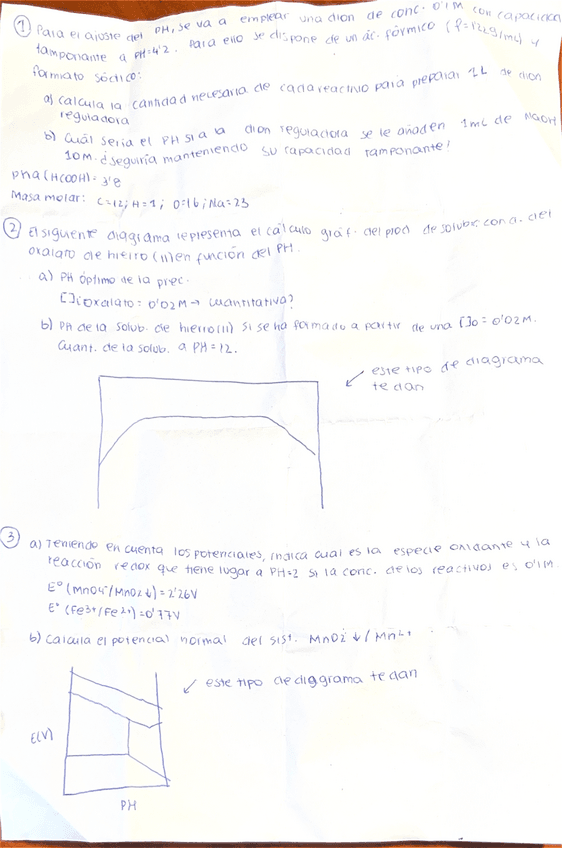 ① Para el ajuste del PH, se va a emplear una dion de conc. 0'1M con capacidad
tamponante a PH=4'2. Para ello se dispone de un ác. fórmico (ρ=1'22g/mL) y
formiato sódico:
a) calcula la cantidad necesaria de cada reactivo para preparar 1L de dion
reguladora
b) Cuál sería el PH si a la dion reguladora se le añaden 1mL de NaOH
10M. ¿seguiría manteniendo su capacidad tamponante?
pka (HCOOH)= 3'8
Masa molar: C=12; H=1; O=16; Na=23
② El siguiente diagrama representa el cálculo gráf. del prod de solub. con a. del
oxalato de hierro (II) en función del PH.
a) PH óptimo de la prec.
[]i oxalato = 0'02M → cuantitativa?
b) PH de la solub. de hierro(II) si se ha formado a partir de una []o = 0'02M.
Cuant. de la solub. a PH=12.
este tipo de diagrama
te dan
③ a) Teniendo en cuenta los potenciales, indica cual es la especie oxidante y la
reacción redox que tiene lugar a PH=2 si la conc. de los reactivos es 0'1M.
E° (MnO4⁻/MnO2↓) = 2'26V
E° (Fe3+/Fe2+) = 0'77V
b) Calcula el potencial normal del sist. MnO2↓/Mn2+
este tipo de diggrama te dan
E(V)
PH